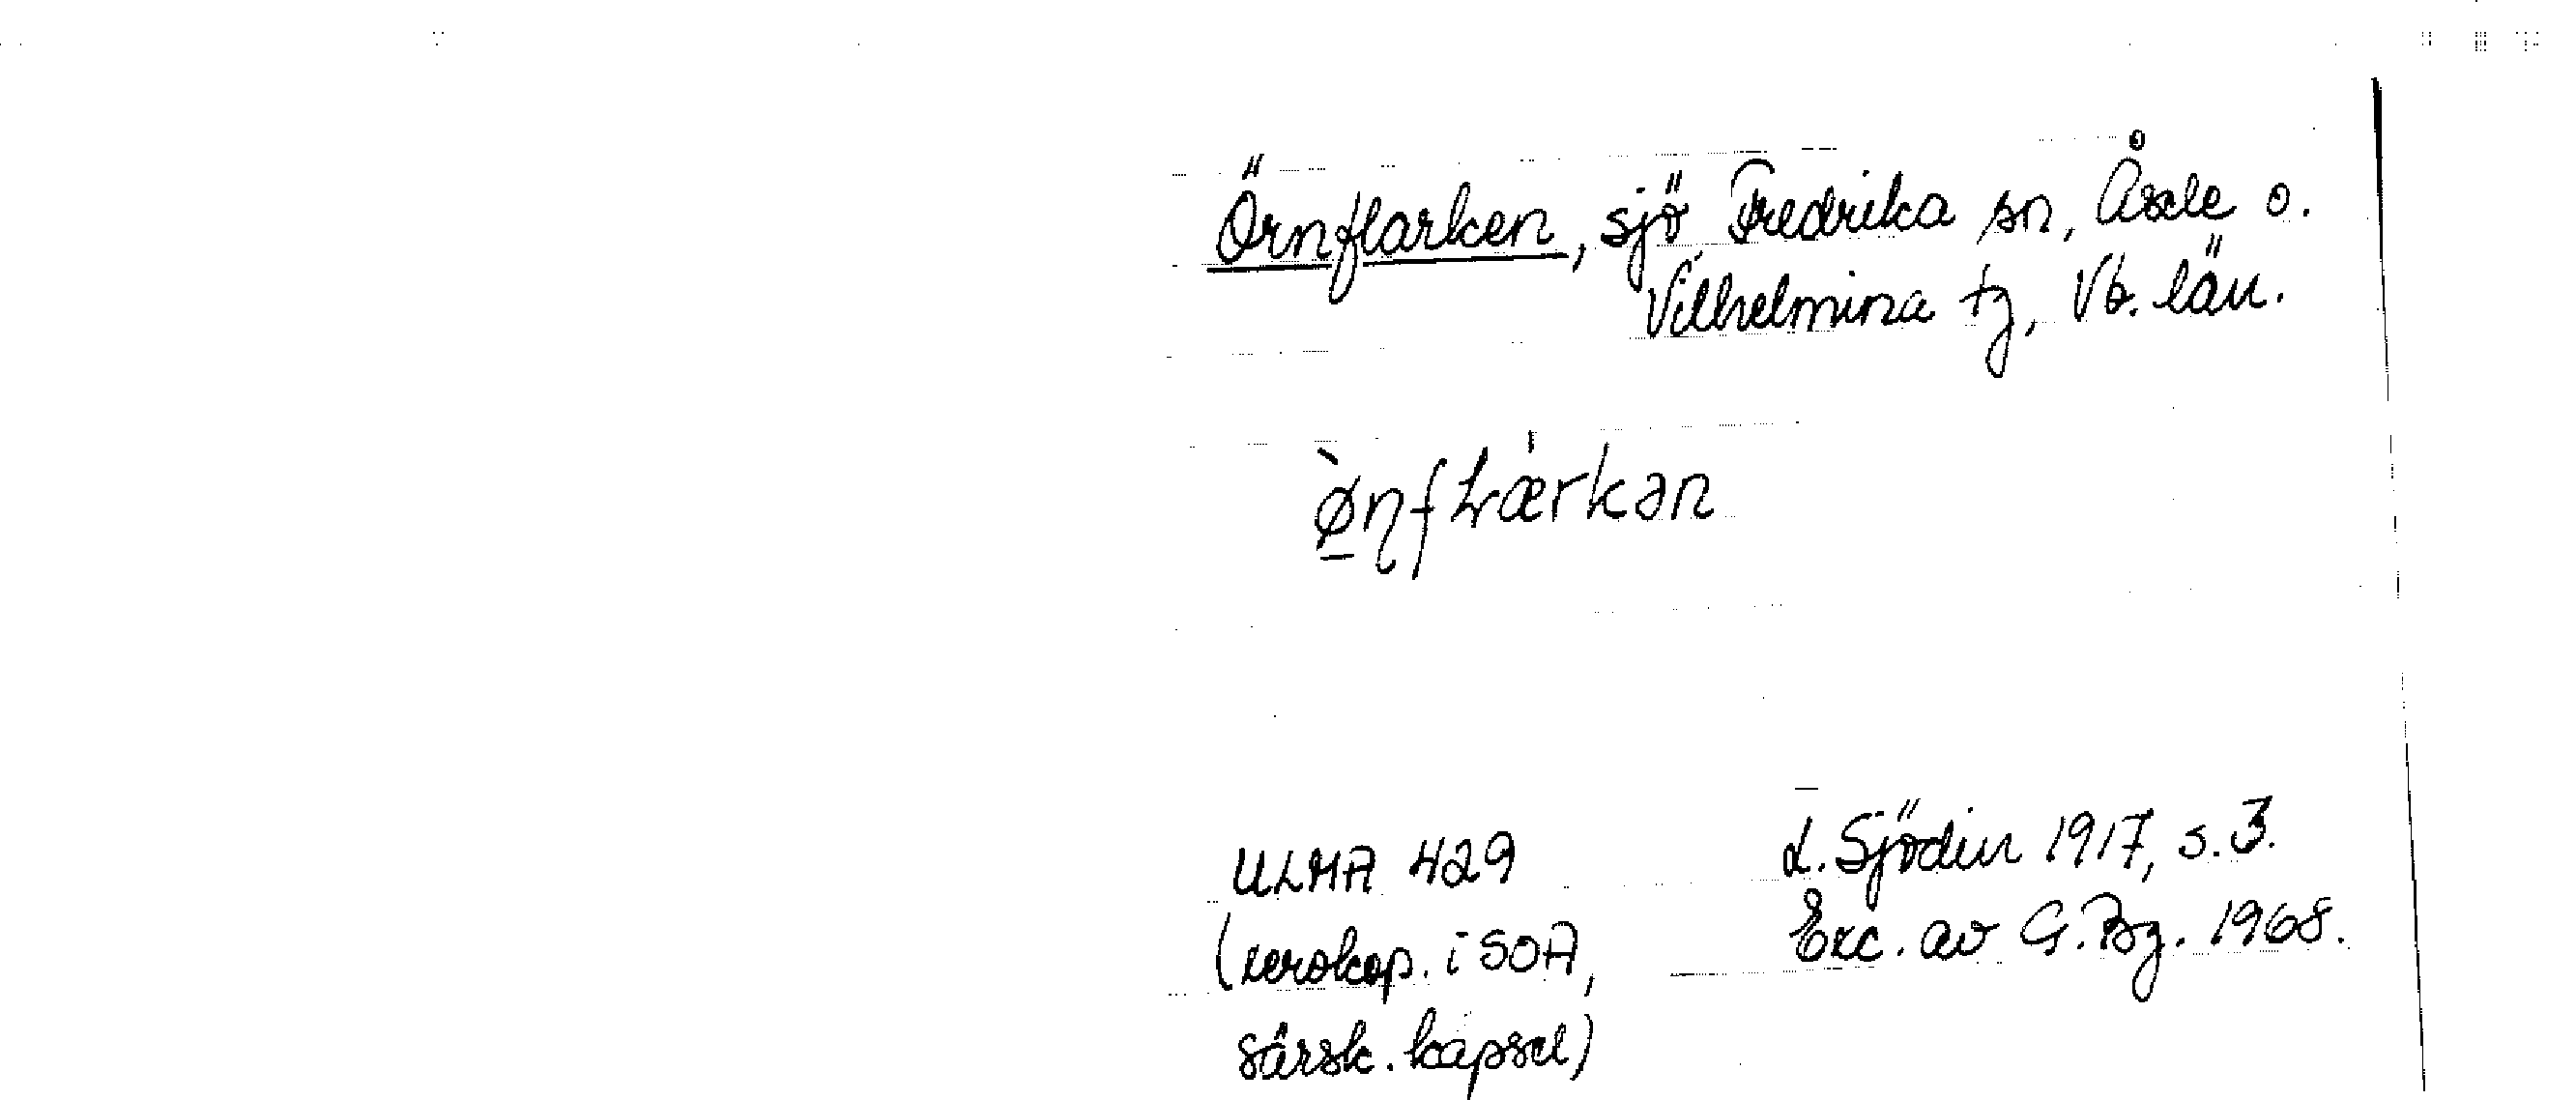 Örnflarken, sjö, Fredrika sn, Åsele o.
Vilhelmina tg, Vb. län.
ø̲̀ɳfⱡæ̍rkən
ULMA 429
(xerokop. i SOA,
särsk. kapsel)
L. Sjödin 1917, s. 3.
Exc. av G. Bg. 1968.